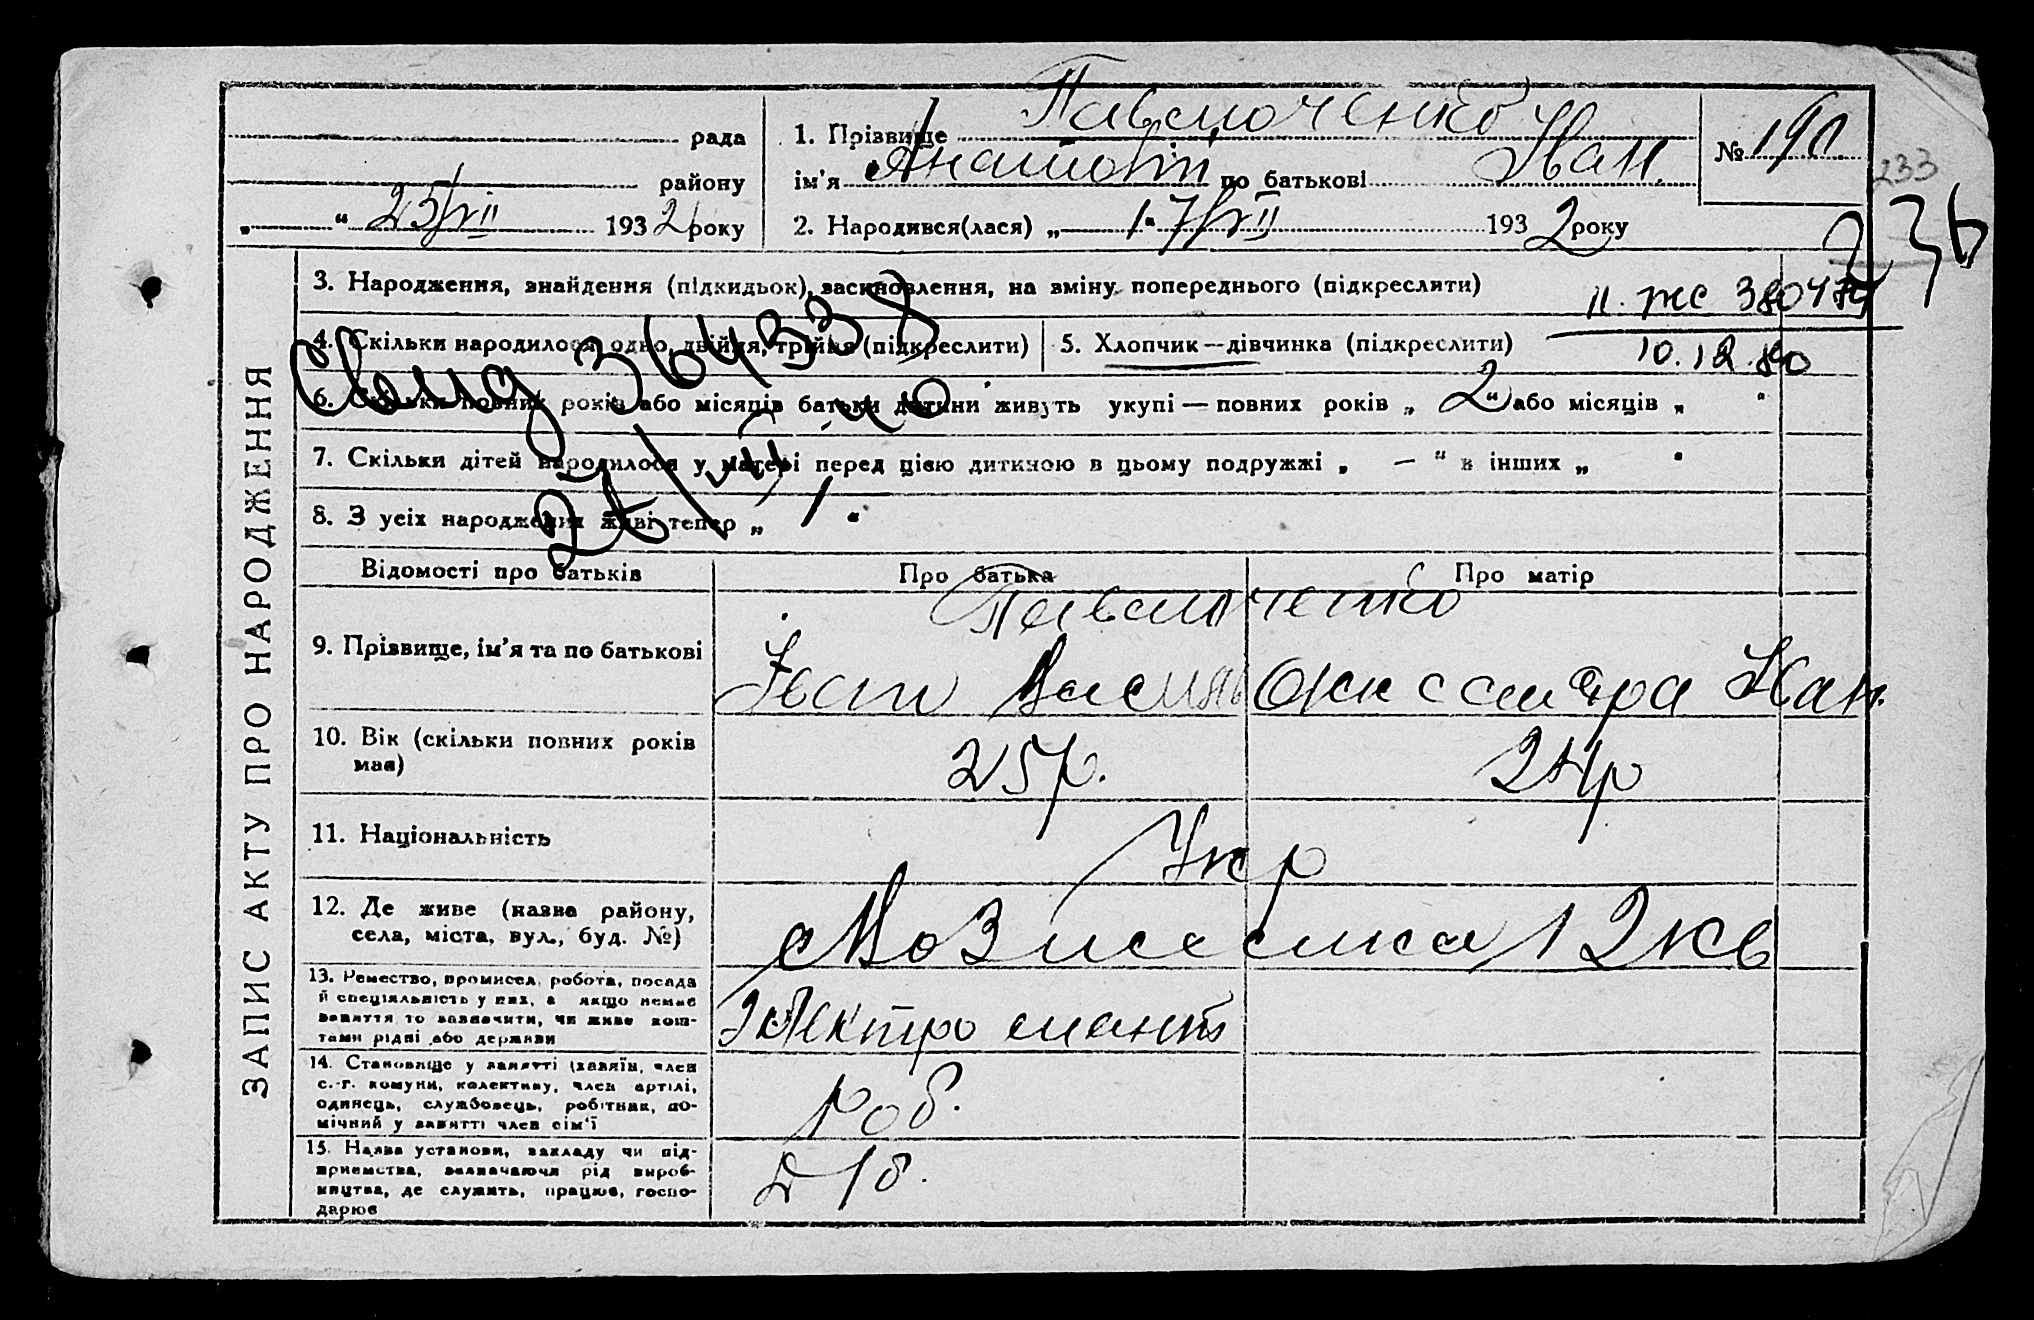 рада
1. Прізвище Павлюченко
№ 190
району
ім'я Анатолій по батькові Іван.
233
„ “ 25/VII 1932 року
2. Народився(лася) „ 17/VII 1932 року
236
ЗАПИС АКТУ ПРО НАРОДЖЕННЯ
3. Народження, знайдення (підкидьок), засиновлення, на зміну попереднього (підкреслити)
II. ЖС 380474
4. Скільки народилося одно, двійня, трійня (підкреслити)
5. Хлопчик—дівчинка (підкреслити)
10.12.80
364338
6. Скільки повних років або місяців батьки дитини живуть укупі — повних років „ 2 “ або місяців „ “
7. Скільки дітей народилося у матері перед цією дитиною в цьому подружжі „ — “ в інших „ “
8. З усіх народжених живі тепер „ 1 “
Відомості про батьків
Про батька
Про матір
Павлюченко
9. Прізвище, ім'я та по батькові
Іван Василь
Олександра Іван.
10. Вік (скільки повних років має)
25р.
24р
11. Національність
Укр
12. Де живе (назва району, села, міста, вул., буд. №)
12 кв
13. Ремество, промисел, робота, посада
й спеціяльність у них, а якщо немає
заняття то зазначити, чи живе кош-
тами рідні або держави
Электромонт
14. Становище у занятті (хазяїн, член
с.-г. комуни, колективу, член артілі,
одинець, службовець, робітник, по-
мічний у занятті член сім'ї
роб.
15. Назва установи, закладу чи під-
приємства, зазначаючи рід вироб-
ництва, де служить, працює, госпо-
дарює